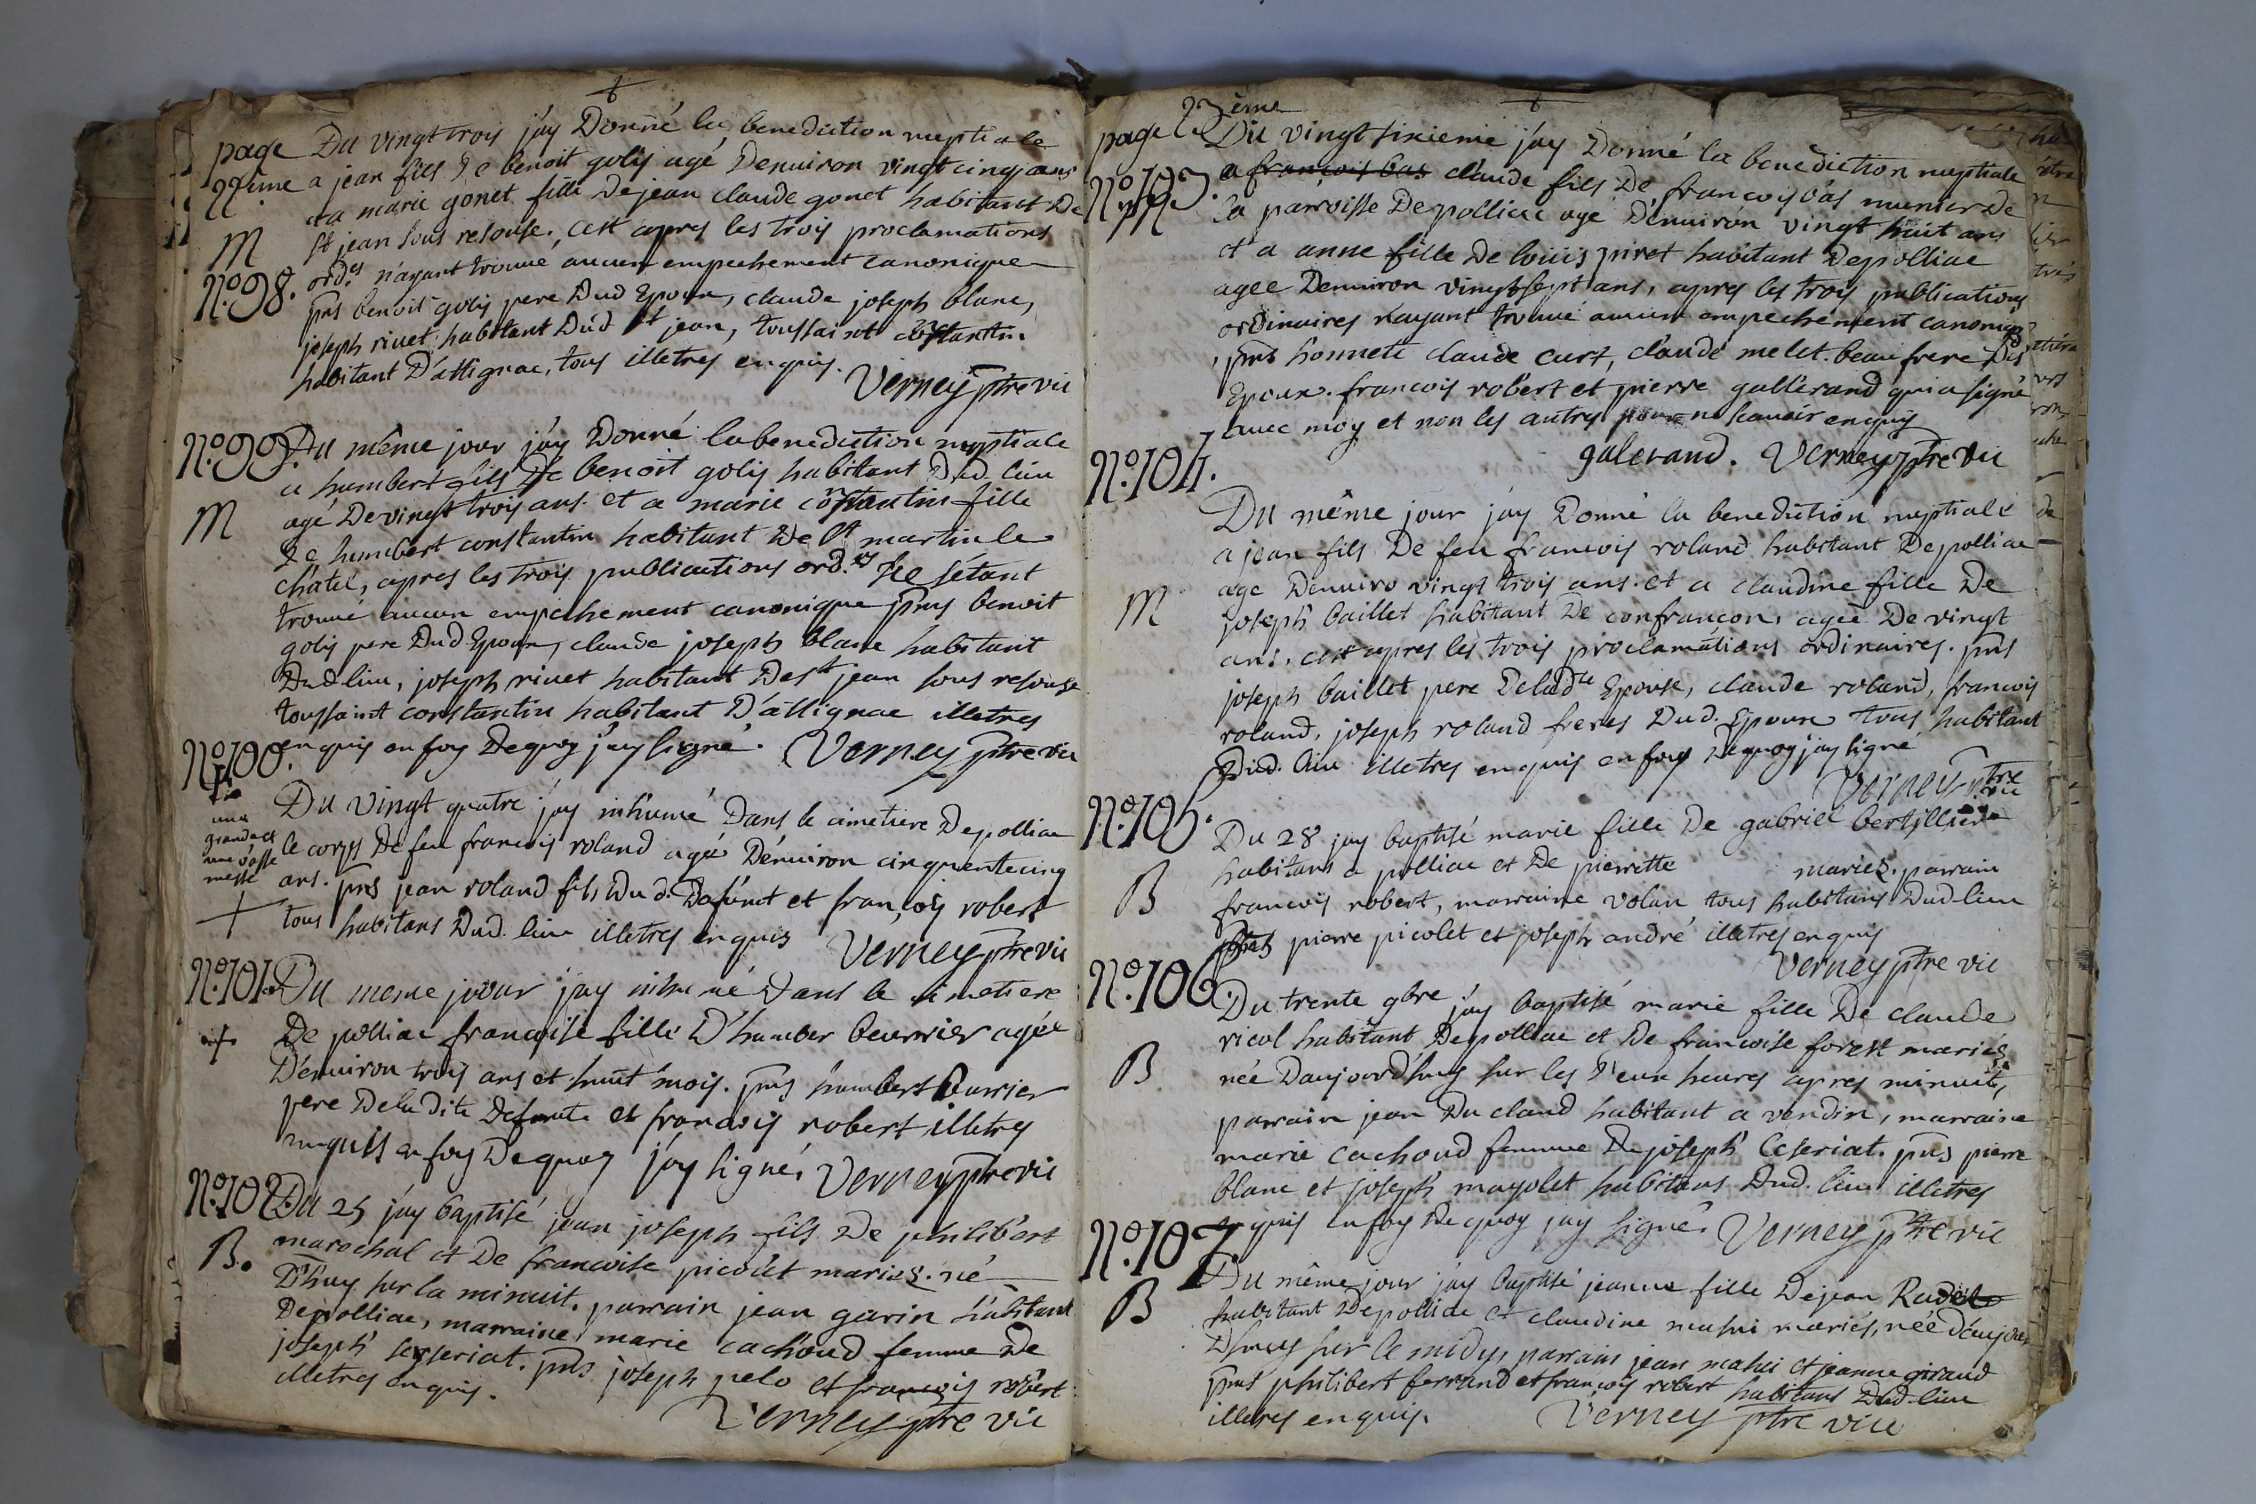 page 22ème
Du vingt trois j'ay Donné la benediction nuptiale
a jean fils De benoit goly agé Denuiron vingt cinq ans
et a marie gonet fille De jean claude gonet habitant De
M
St jean sous resouse. cest apres les trois proclamations
N.o 98.
ord.es n'ayant trouué aucun empechement canonique
pns benoit goly pere Dud Epoux, claude joseph blanc,
joseph riuet habitant Dud St jean, toussaint constantin
habitant D'attignac, tous illetres enquis.
Verney ptre vic
N.o 99.
Du même jour j'ay Donné la benediction nuptiale
a humbert fils De benoit goly habitant Dud. lieu
agé De vingt trois ans. et a marie constantin fille
M
De humbert constantin habitant De St martin le
châtel, apres les trois publications ord.es Ne s'etant
trouué aucun empechement canonique pns benoit
goly pere Dud Epoux, claude joseph blanc habitant
Dud lieu, joseph riuet habitant De St jean sous resouse
toussaint constantin habitant D'attignac illetres
N.o 100.
enquis en foy Dequoy j'ay signé. Verney ptre vic
Du vingt quatre j'ay inhumé Dans le cimetiere Depolliac
une
grande et
une basse
messe
le corps De feu francois roland agé Dénuiron cinquantecinq
ans. pns jean roland fils Dud. Defunt et francois robert
tous habitans Dud. lieu illetres enquis Verney ptre vic
N.o 101.
Du meme jour j'ay inhumé Dans le cimetiere
De polliac francoise fille D'humber beurrier agée
D'enuiron trois ans et huit mois. pns humbert burrier
pere Deladite Defunte et francois robert illetres
enquis en foy Dequoy j'ay signé. Verney ptre vic
N.o 102.
Du 25 j'ay baptisé jean joseph fils De philibert
B.
marechal et De francoise picolet mariez. né
D'huy sur la minuit. parrain jean garin habitant
Depolliac, marraine marie cachoud femme De
joseph seseriat. pns joseph pelo et francois robert
illetres enquis.
Verney ptre vic
page 23ème
Du vingt sixieme j'ay Donné la benediction nuptiale
N.o 103.
a françois bas claude fils De francois bas munier De
M
la parroisse De polliac agé D'enuiron vingt huit ans
et a anne fille De louis piret habitant Depolliac
agée Denuiron vingt sept ans, apres les trois publications
ordinaires n'ayant trouué aucun empechement canoniq
pns honnete claude curt, claude melet. beau frere Dud
Epoux. francois robert et pierre gallerand qui a signé
auec moy et non les autres pour ne scauoir enquis
galerand. Verney ptre vic
N.o 104.
Du même jour j'ay Donné la benediction nuptiale
a jean fils De feu francois roland habitant Depolliac
age Denuiro vingt trois ans. et a claudine fille De
M
joseph baillet habitant De confrançon, agée De vingt
ans. cest apres les trois proclamations ordinaires. pns
joseph baillet pere Delad.te Epouse, claude roland, francois
roland, joseph roland freres Dud. Epoux tous habitant
Dud. lieu illetres enquis en foy Dequoy j'ay signé
Verney ptre
vic
N.o 105.
Du 28 j'ay baptisé marie fille De gabriel bertillier
habitans a polliac et De pierrette mariez. parrain
B
francois robert, marraine volan tous habitans Dud lieu
pns pierre picolet et joseph andré illetres enquis
Verney ptre vic
N.o 106.
Du trente 9bre j'ay baptisé marie fille De claude
ricol habitant Depolliac et De francoise forest mariez
B
née D'aujourd'huy sur les Deux heures apres minuit,
parrain jean Du claud habitant a vendin, marraine
marie cachoud femme De joseph Ceseriat. pns pierre
blanc et joseph mayolet habitans Dud. lieu illetres
enquis en foy De quoy j'ay signé. Verney ptre vic
N.o 107.
Du même jour j'ay baptisé jeanne fille De jean Rude
B
habitant Depolliac et claudine mahui mariés, née D'aujour
D'huy sur le midy, parrain jean mahui et jeanne giraud
pns philibert ferrand et francois robert habitans Dud lieu
illetres enquis. Verney ptre vic